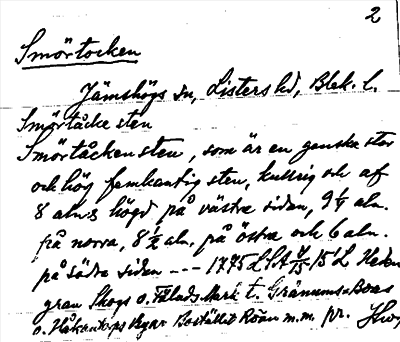 2
Smörtocken
Jämshögs sn, Listers hd, Blek. l.
Smörtåcke sten
Smörtåckensten, som är en ganska stor
och hög femkantig sten, kullrig och af
8 aln:s högd på västra sidan, 9 1/4 aln.
på norra, 8 1/2 aln. på östra och 6 aln.
på södra sidan --- 1775 LSA
gran Skogs o. Fälads Mark t. Gränum
o. Håkantorps Byar Bostället Röån m.m. pr.